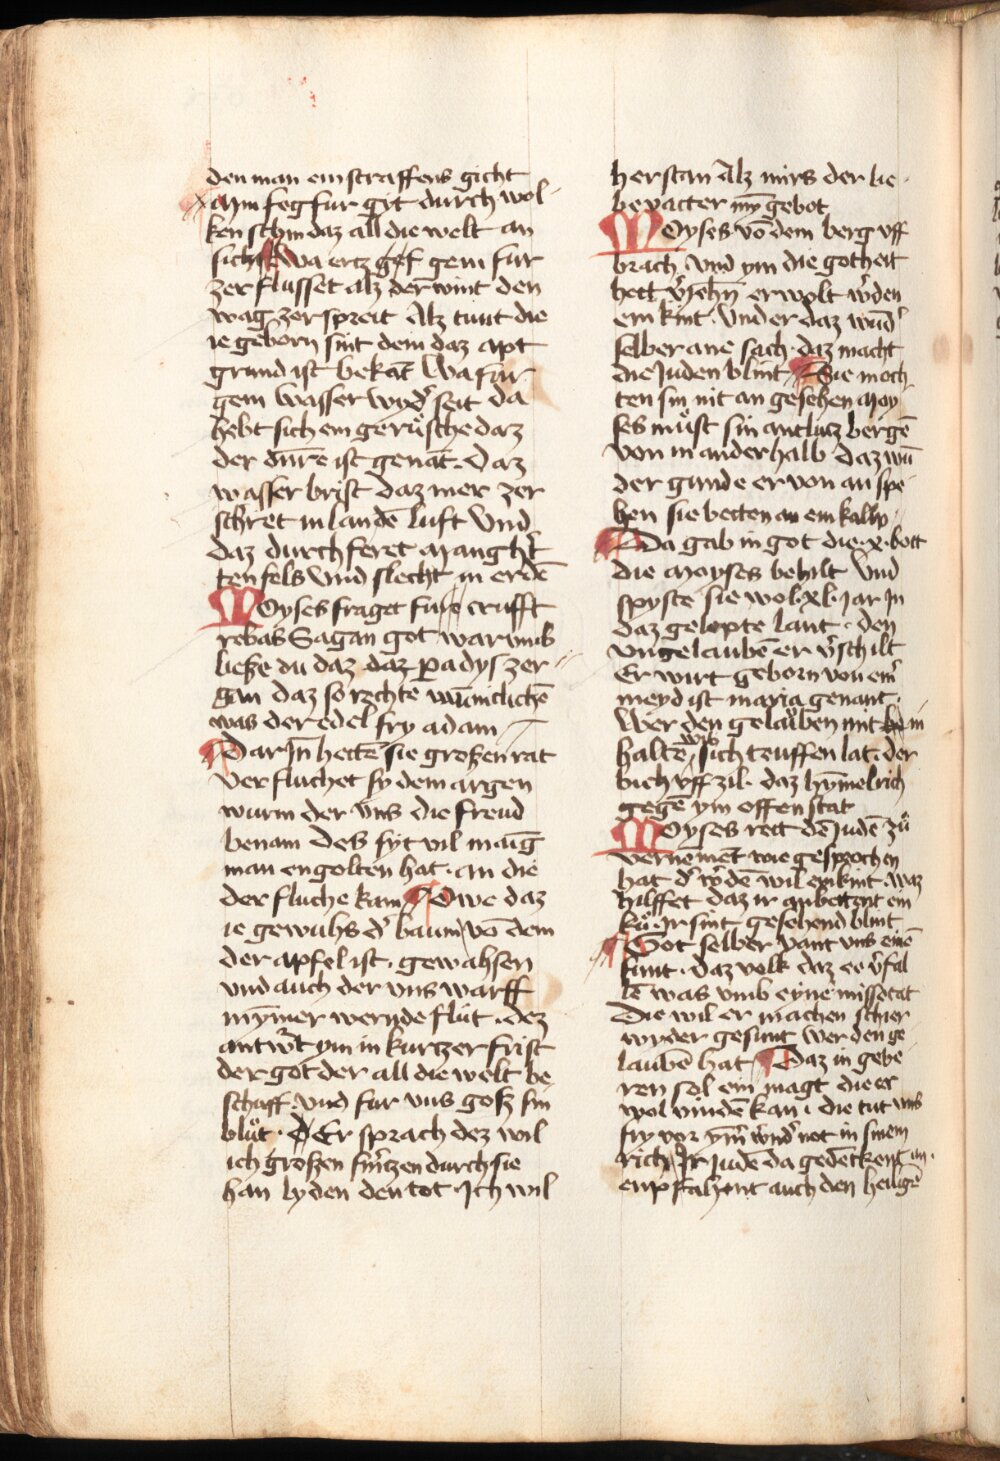 den man ein straffens gicht
Ayin fegfur git durch wol
ken schin daz all die welt an
sicht Wa ertz gef gein fur
zerflusset alz der wint den
wag zerspreit Alz tunt die
ie geborn sint dem daz apt
grund ist bekāt Wa fur
gein wasser wyd͛ seit da
hebt sich ein gerusche daz
der dūre ist genāt. Daz
wasser brist daz mer zer
schret in landē luft Vnd
daz durch feret mang h͛t
ten fels Vnd slecht in erdē
Moyses fraget furē crufft
rebas Sagan got war vmb
ließe du daz daz padys zer
gan daz so rechte wūnclichē
was der edel fry adam
Dar In hettē sie großen rat
Verfluchet sy dem argen
wurm der vns die freud
benam Des syt vil maīg
man engolten hat. an die
der fluche kam Owe daz
ie gewuhs d͛ baum vō dem
der apfel ist. gewahsen
vnd auch der vns warff
in ȳmer wernde flut. dez
antw͛t ym in kurtzer frist
der got der all die welt be
schaff. vnd fur vns gosz sin
blut. Er sprach dez wil
ich großen sm͛tzen durch sie
han lyden den tot. Ich wil
herstan Alz mirs der lie
be vatter mȳ gebot
Moyses vō dem berg vff
brach. Vnd ym die gotheit
hett v͛iehn̄ er wolt w͛den
ein kint. Vnd er daz wūd͛
selber ane sach. daz macht
die Juden blint Sie moch
ten sin nit an gesehen moy
ses must sin antlucz bergē
von in anderhalb Daz wū
der gunde er von an spe
hen sie betten an ein kalbp
Da gab in got die .x. bott
die moyses behilt Vnd
spyste sie wol .xl. iar In
daz gelopte lant. den
vngelaubē er v͛schilt
Er wirt geborn von ein͛
meyd ist maria genant.
Wer den gelauben mit in
haltē wib sich teuffen lat. der
bich vff zil. daz hȳmelrich
gegē ym offen stat
Moyses rett dē Judē zů
vernement wie gesprochen
hat d͛ w͛dē wil ein kint. waz
hilffet daz ir anbettent ein
ků. Ir sint gesehend blint
Got selber vant vns einē
funt. daz volk daz er v͛fal
lē was vmb eyne missetat
Die wil er machen schier
wyder gesunt wer den ge
laubē hat Daz in gebe
ren sol ein magt die er
wol vindē kan. die tut vns
fry vor ym͛ w͛nd͛ not in sinem
rich Ir Judē da gedenckent an.
enpfahent auch den heilgē